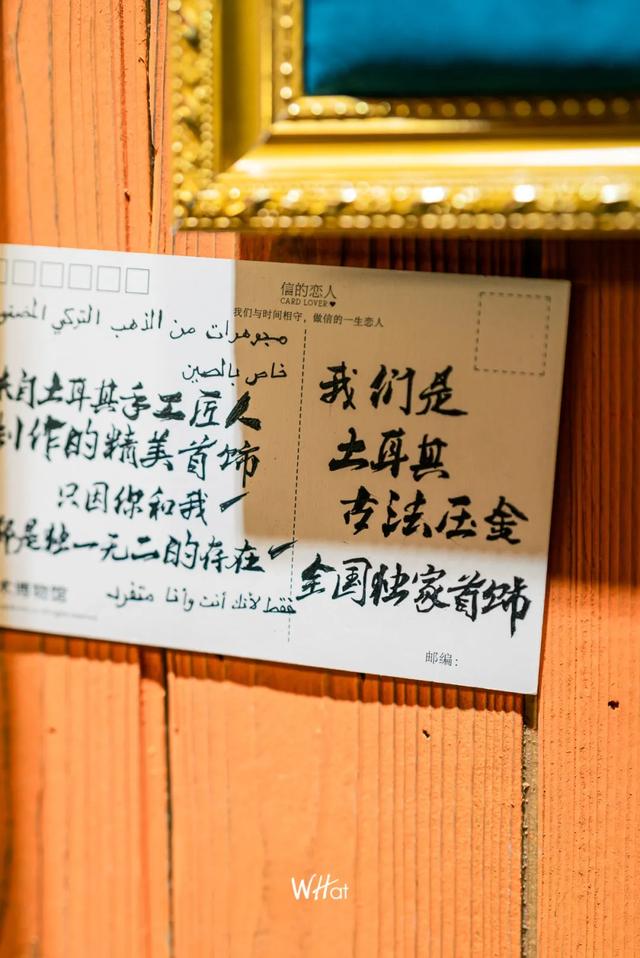 信的恋人
CARD LOVER♥
我们与时间相守，做信的一生恋人
مجوهرات من الذهب التركي
خاص بالصين
来自土耳其手工匠人
制作的精美首饰
只因你和我
是独一无二的存在
فقط لأنك أنت وأنا متفرد
博物馆
我们是
土耳其
古法压金
全国独家首饰
邮编：
WHat